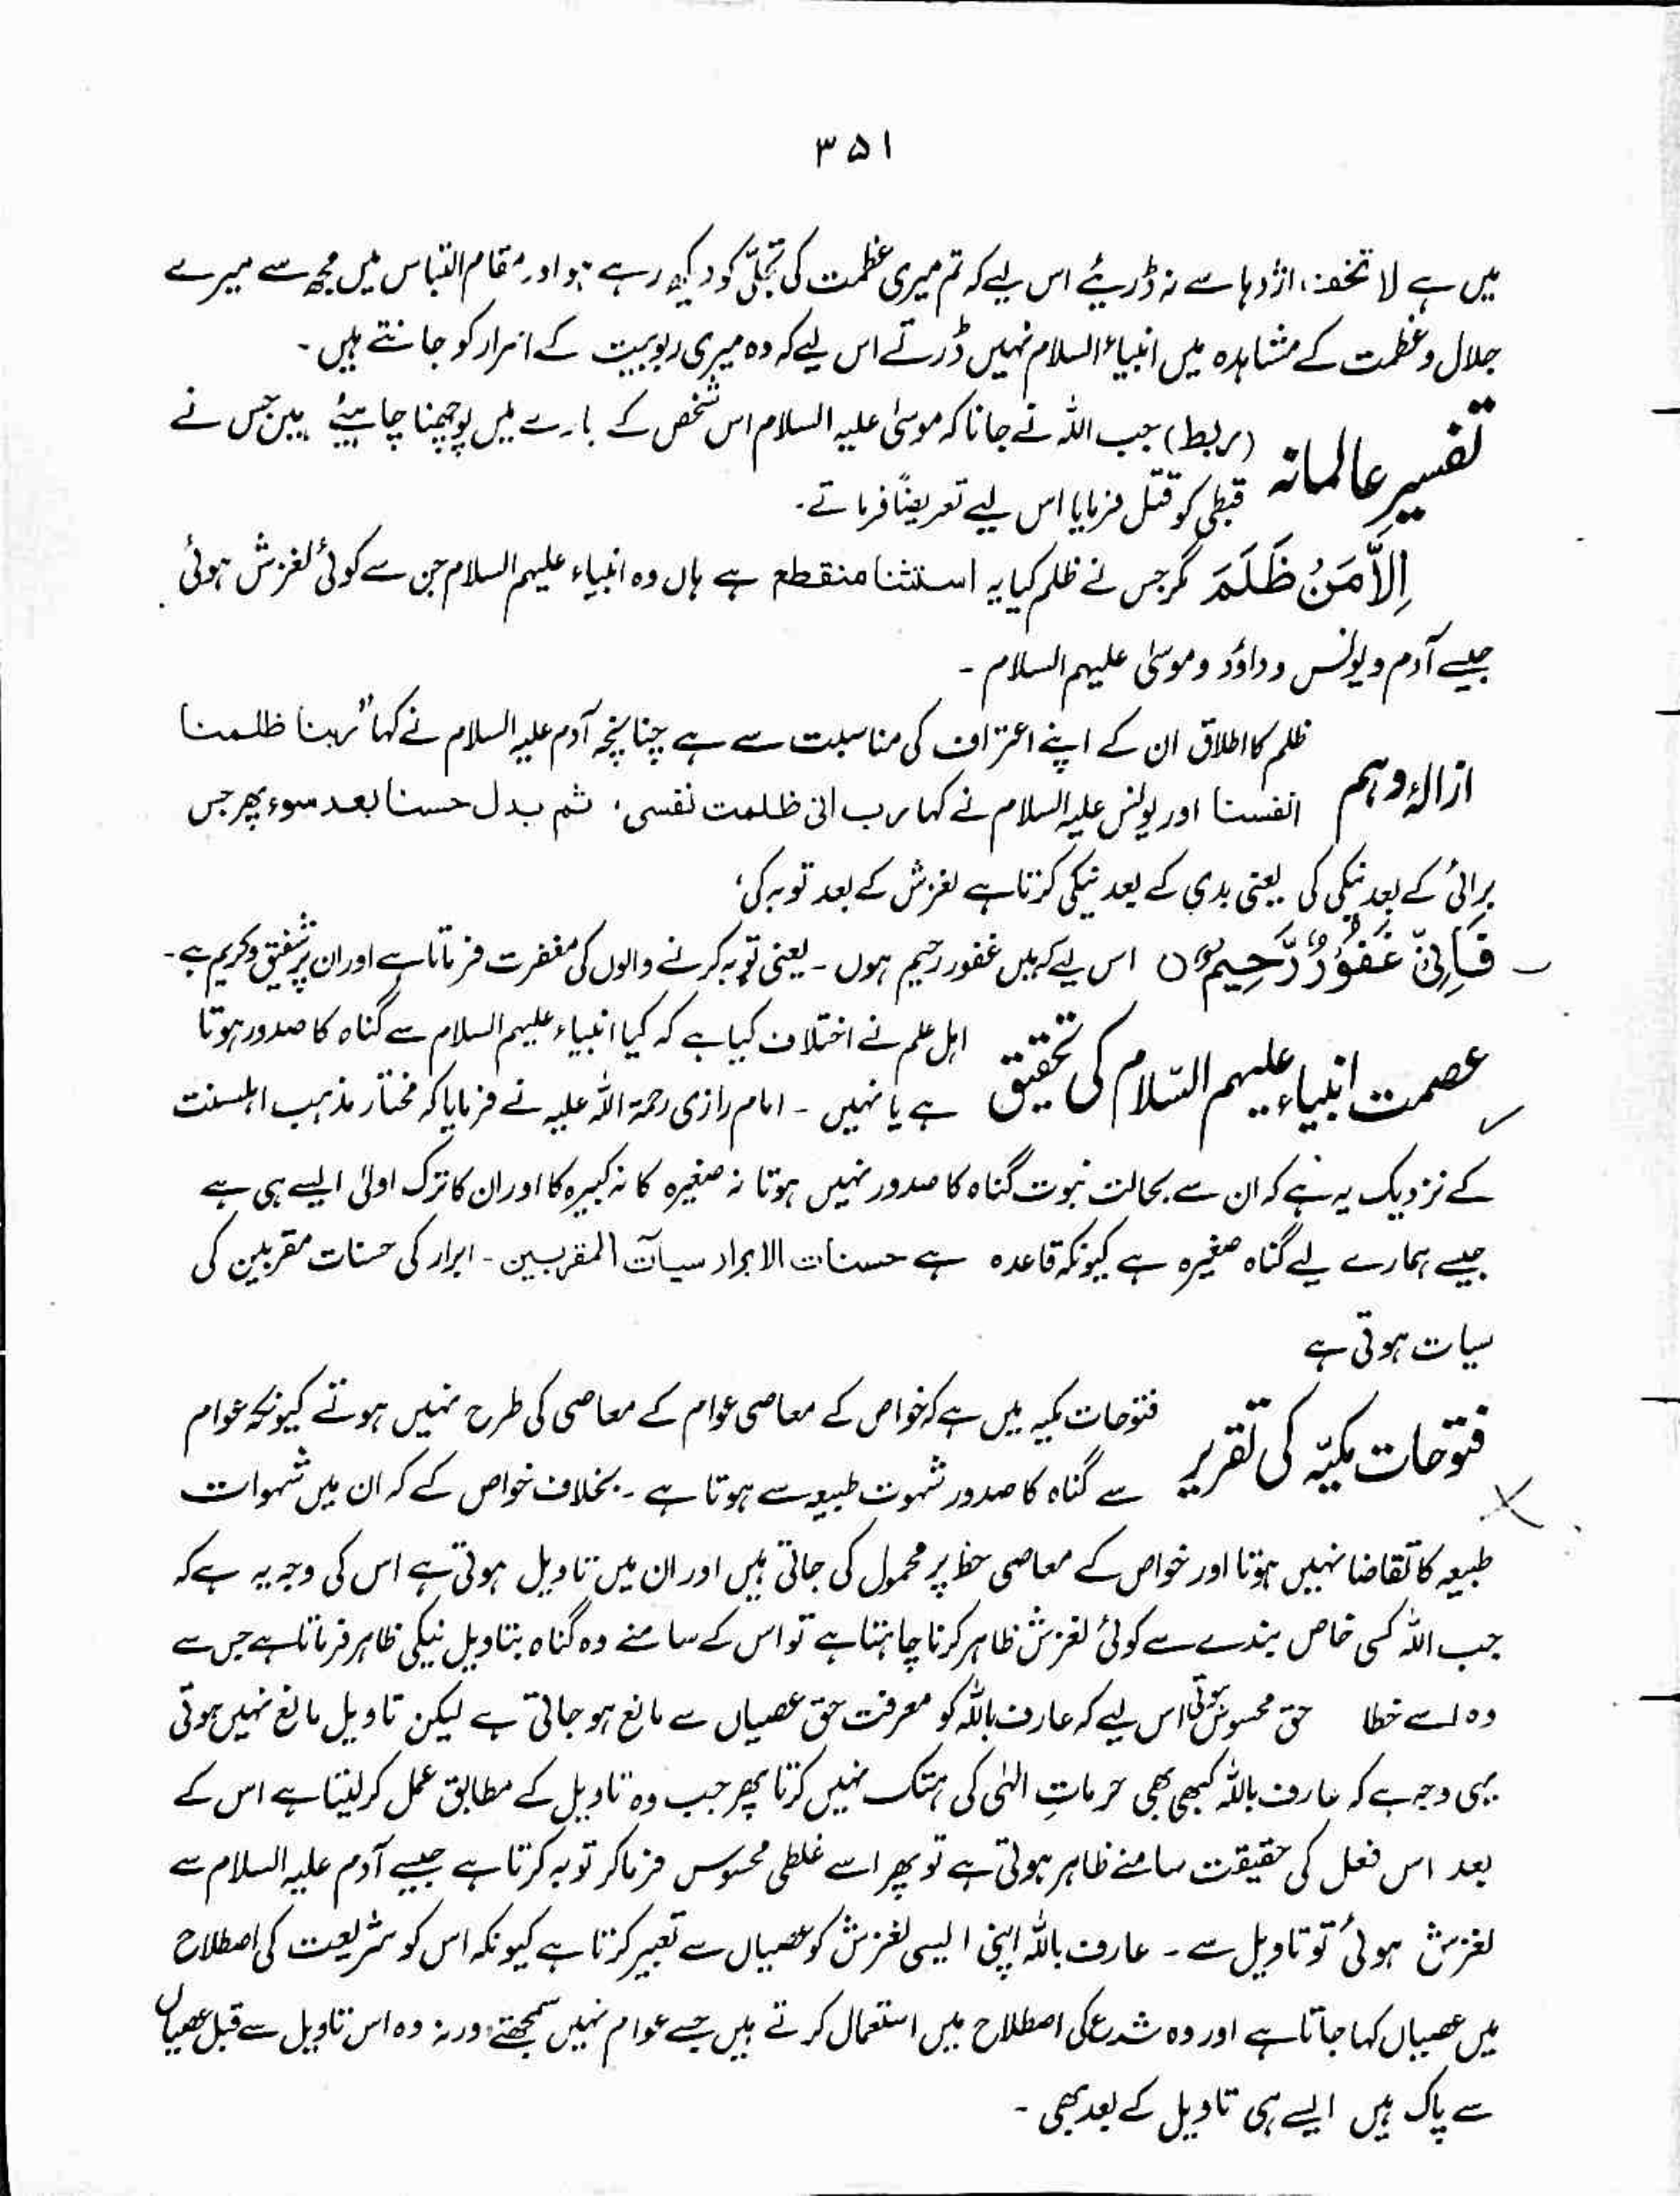 ۳۵۱
میں ہے لا تخف، اژدہا سے نہ ڈریئے اس لیے کہ تم میری عظمت کی تجلّی کو دیکھ رہے ہو اور مقام التباس میں مجھ سے میرے
جلال و عظمت کے مشاہدہ میں انبیاءُ السلام نہیں ڈرتے اس لیے کہ وہ میری ربوبیت کے اسرار کو جانتے ہیں۔
تفسیرِ عالمانہ (ربط) جب اللہ نے جانا کہ موسیٰ علیہ السلام اس شخص کے بارے میں پوچھنا چاہیئے ہیں جس نے
قبطی کو قتل فرمایا اس لیے تعریضًا فرماتے۔
اِلَّا مَنْ ظَلَمَ مگر جس نے ظلم کیا یہ استثنا منقطع ہے ہاں وہ انبیاء علیہم السلام جن سے کوئی لغزش ہوئی
جیسے آدم و یونس و داؤد و موسیٰ علیہم السلام ۔
ازالۂ وہم ظلم کا اطلاق ان کے اپنے اعتراف کی مناسبت سے ہے چنانچہ آدم علیہ السلام نے کہا "ربنا ظلمنا
انفسنا اور یونس علیہ السلام نے کہا رب انی ظلمت نفسی، ثم بدل حسنا بعد سوء پھر جس
برائی کے بعد نیکی کی یعنی بدی کے بعد نیکی کرتا ہے لغزش کے بعد توبہ کی،
فَاِنِّیْ غَفُوْرٌ رَّحِیْمٌ ○ اس لیے کہ میں غفور رحیم ہوں ۔ یعنی توبہ کرنے والوں کی مغفرت فرماتا ہے اور ان پر شفیق و کریم ہے۔
عصمت انبیاء علیہم السّلام کی تحقیق اہل علم نے اختلاف کیا ہے کہ کیا انبیاء علیہم السلام سے گناہ کا صدور ہوتا
ہے یا نہیں ۔ امام رازی رحمۃ اللہ علیہ نے فرمایا کہ مختار مذہب اہلسنت
کے نزدیک یہ ہے کہ ان سے بحالت نبوت گناہ کا صدور نہیں ہوتا نہ صغیرہ کا نہ کبیرہ کا اور ان کا ترک اولیٰ ایسے ہی ہے
جیسے ہمارے لیے گناہ صغیرہ ہے کیونکہ قاعدہ ہے حسنات الابرار سیآت المقربین ۔ ابرار کی حسنات مقربین کی
سیات ہوتی ہے
فتوحات مکیّہ کی تقریر فتوحات مکیہ میں ہے کہ خواص کے معاصی عوام کے معاصی کی طرح نہیں ہوتے کیونکہ عوام
سے گناہ کا صدور شہوت طبیعہ سے ہوتا ہے ۔ بخلاف خواص کے کہ ان میں شہوات
طبیعہ کا تقاضا نہیں ہوتا اور خواص کے معاصی خطا پر محمول کی جاتی ہیں اور ان میں تاویل ہوتی ہے اس کی وجہ یہ ہے کہ
جب اللہ کسی خاص بندے سے کوئی لغزش ظاہر کرنا چاہتا ہے تو اس کے سامنے وہ گناہ بتاویل نیکی ظاہر فرماتا ہے جس سے
وہ اسے خطا حق محسوس ہوتی اس لیے کہ عارف باللہ کو معرفت حق عصیاں سے مانع ہو جاتی ہے لیکن تاویل مانع نہیں ہوتی
یہی وجہ ہے کہ عارف باللہ کبھی بھی حرماتِ الٰہی کی ہتک نہیں کرتا پھر جب وہ تاویل کے مطابق عمل کر لیتا ہے اس کے
بعد اس فعل کی حقیقت سامنے ظاہر ہوتی ہے تو پھر اسے غلطی محسوس فرما کر توبہ کرتا ہے جیسے آدم علیہ السلام سے
لغزش ہوئی تو تاویل سے ۔ عارف باللہ اپنی ایسی لغزش کو عصیاں سے تعبیر کرتا ہے کیونکہ اس کو شریعت کی اصطلاح
میں عصیاں کہا جاتا ہے اور وہ شرع کی اصطلاح میں استعمال کرتے ہیں جسے عوام نہیں سمجھتے، ورنہ وہ اس تاویل سے قبل عصیاں
سے پاک ہیں ایسے ہی تاویل کے بعد بھی ۔